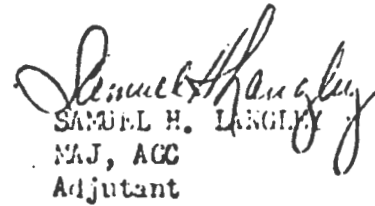 Samuel H Langley
SAMUEL H. LANGLEY
MAJ, AGC
Adjutant